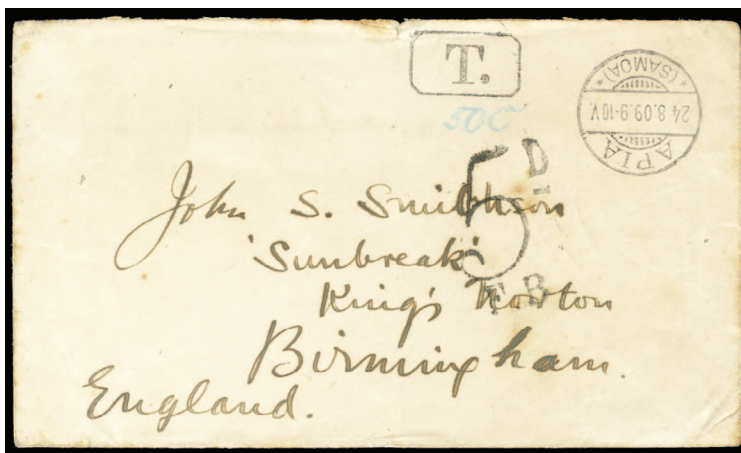 T.
50c
APIA
24.8.09.9-10V.
* (SAMOA) *
5D
F.B
John S. Smithson
'Sunbreak'
King's Norton
Birmingham.
England.